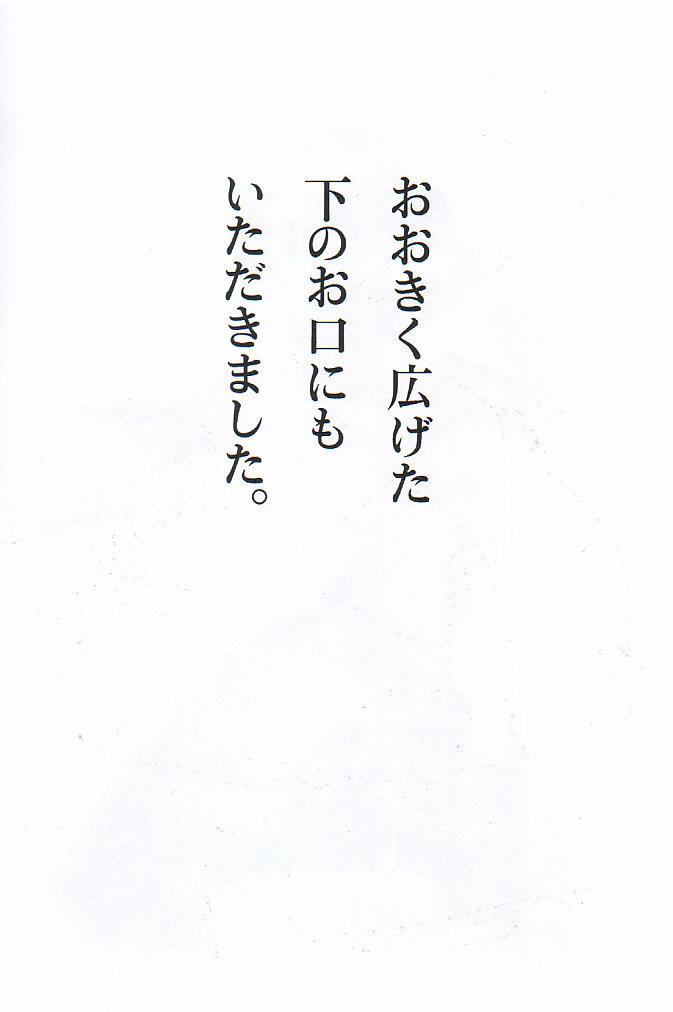 おおきく広げた
下のお口にも
いただきました。